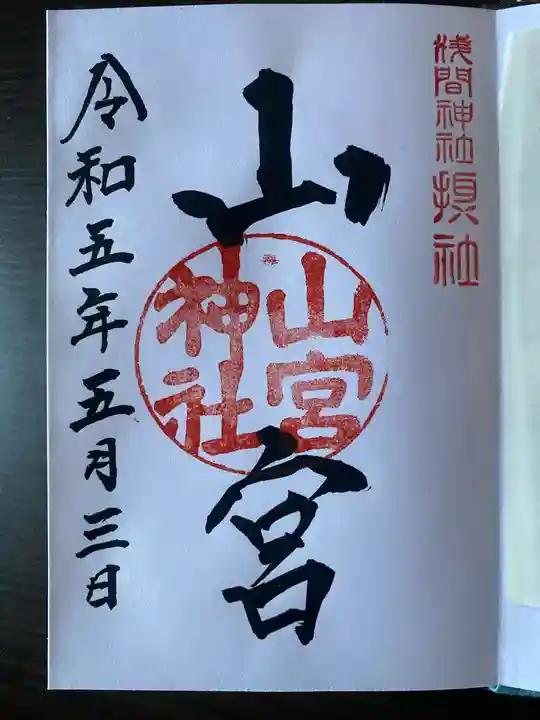 浅間神社摂社
山宮
山宮
神社
令和五年五月三日